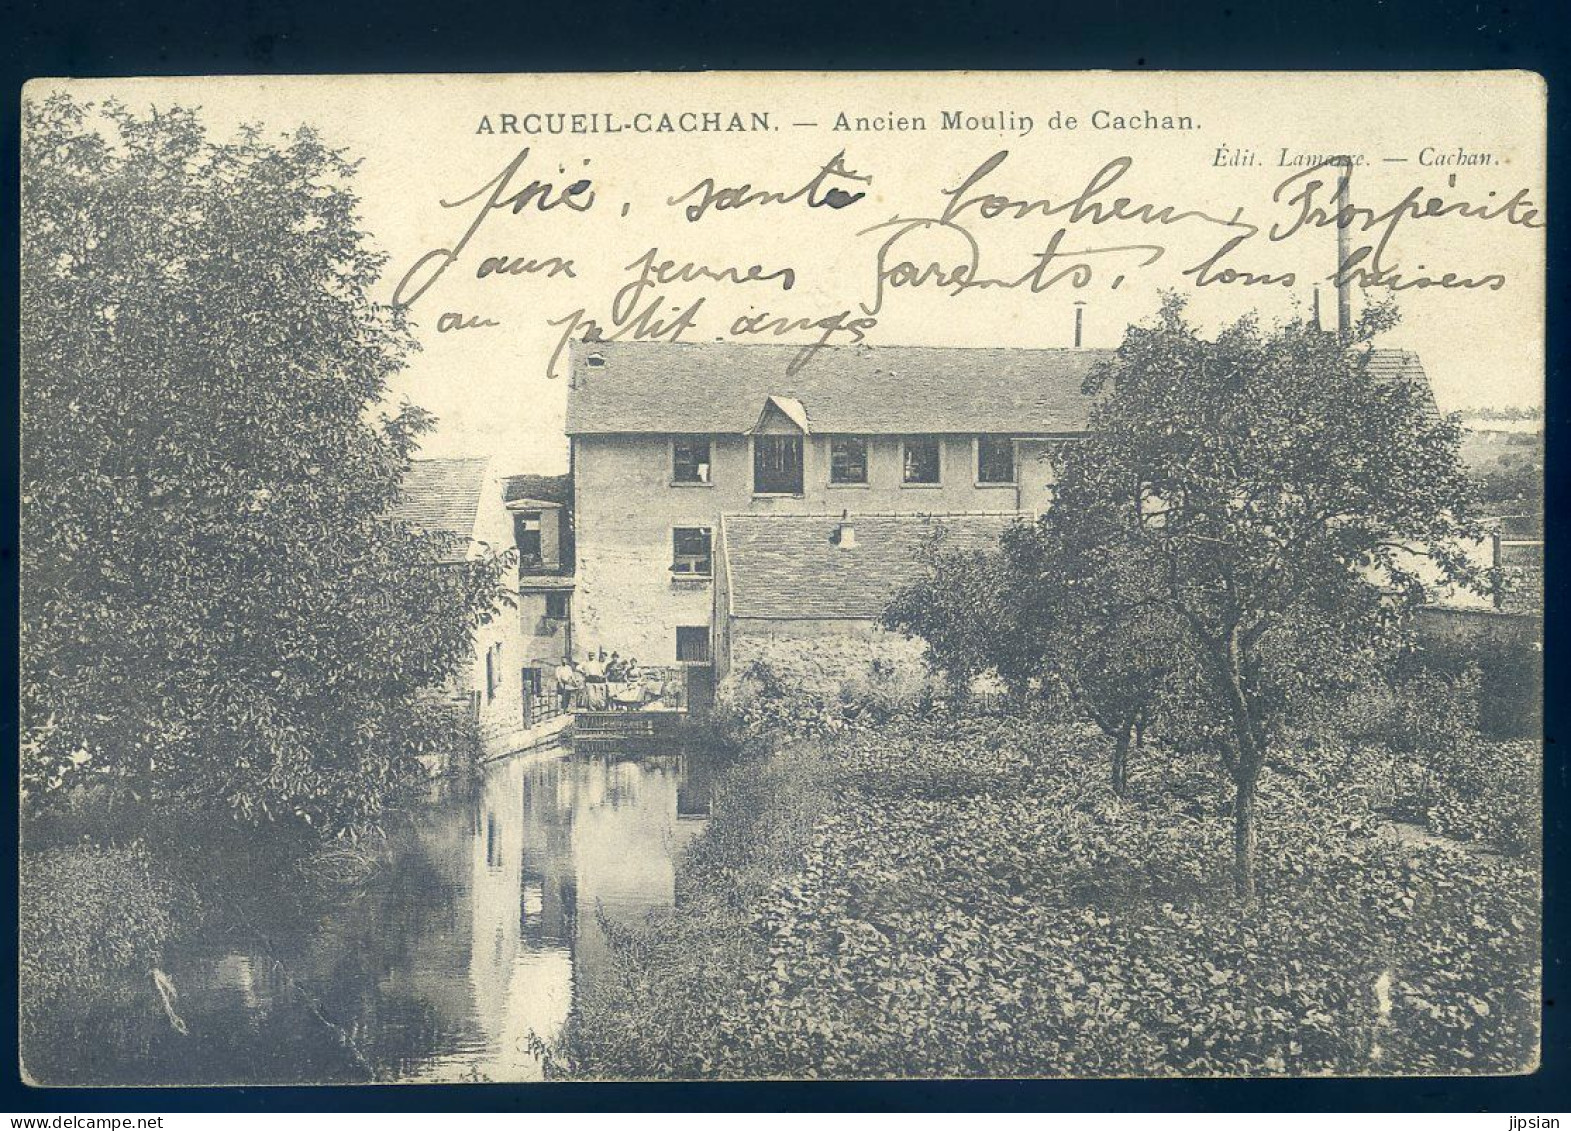 ARCUEIL-CACHAN. — Ancien Moulin de Cachan.
Édit. Lamarre. — Cachan.
joie, santé, bonheur, Prospérité
aux jeunes Parents, bons baisers
au p'tit ange
delcampe.net
jipsian